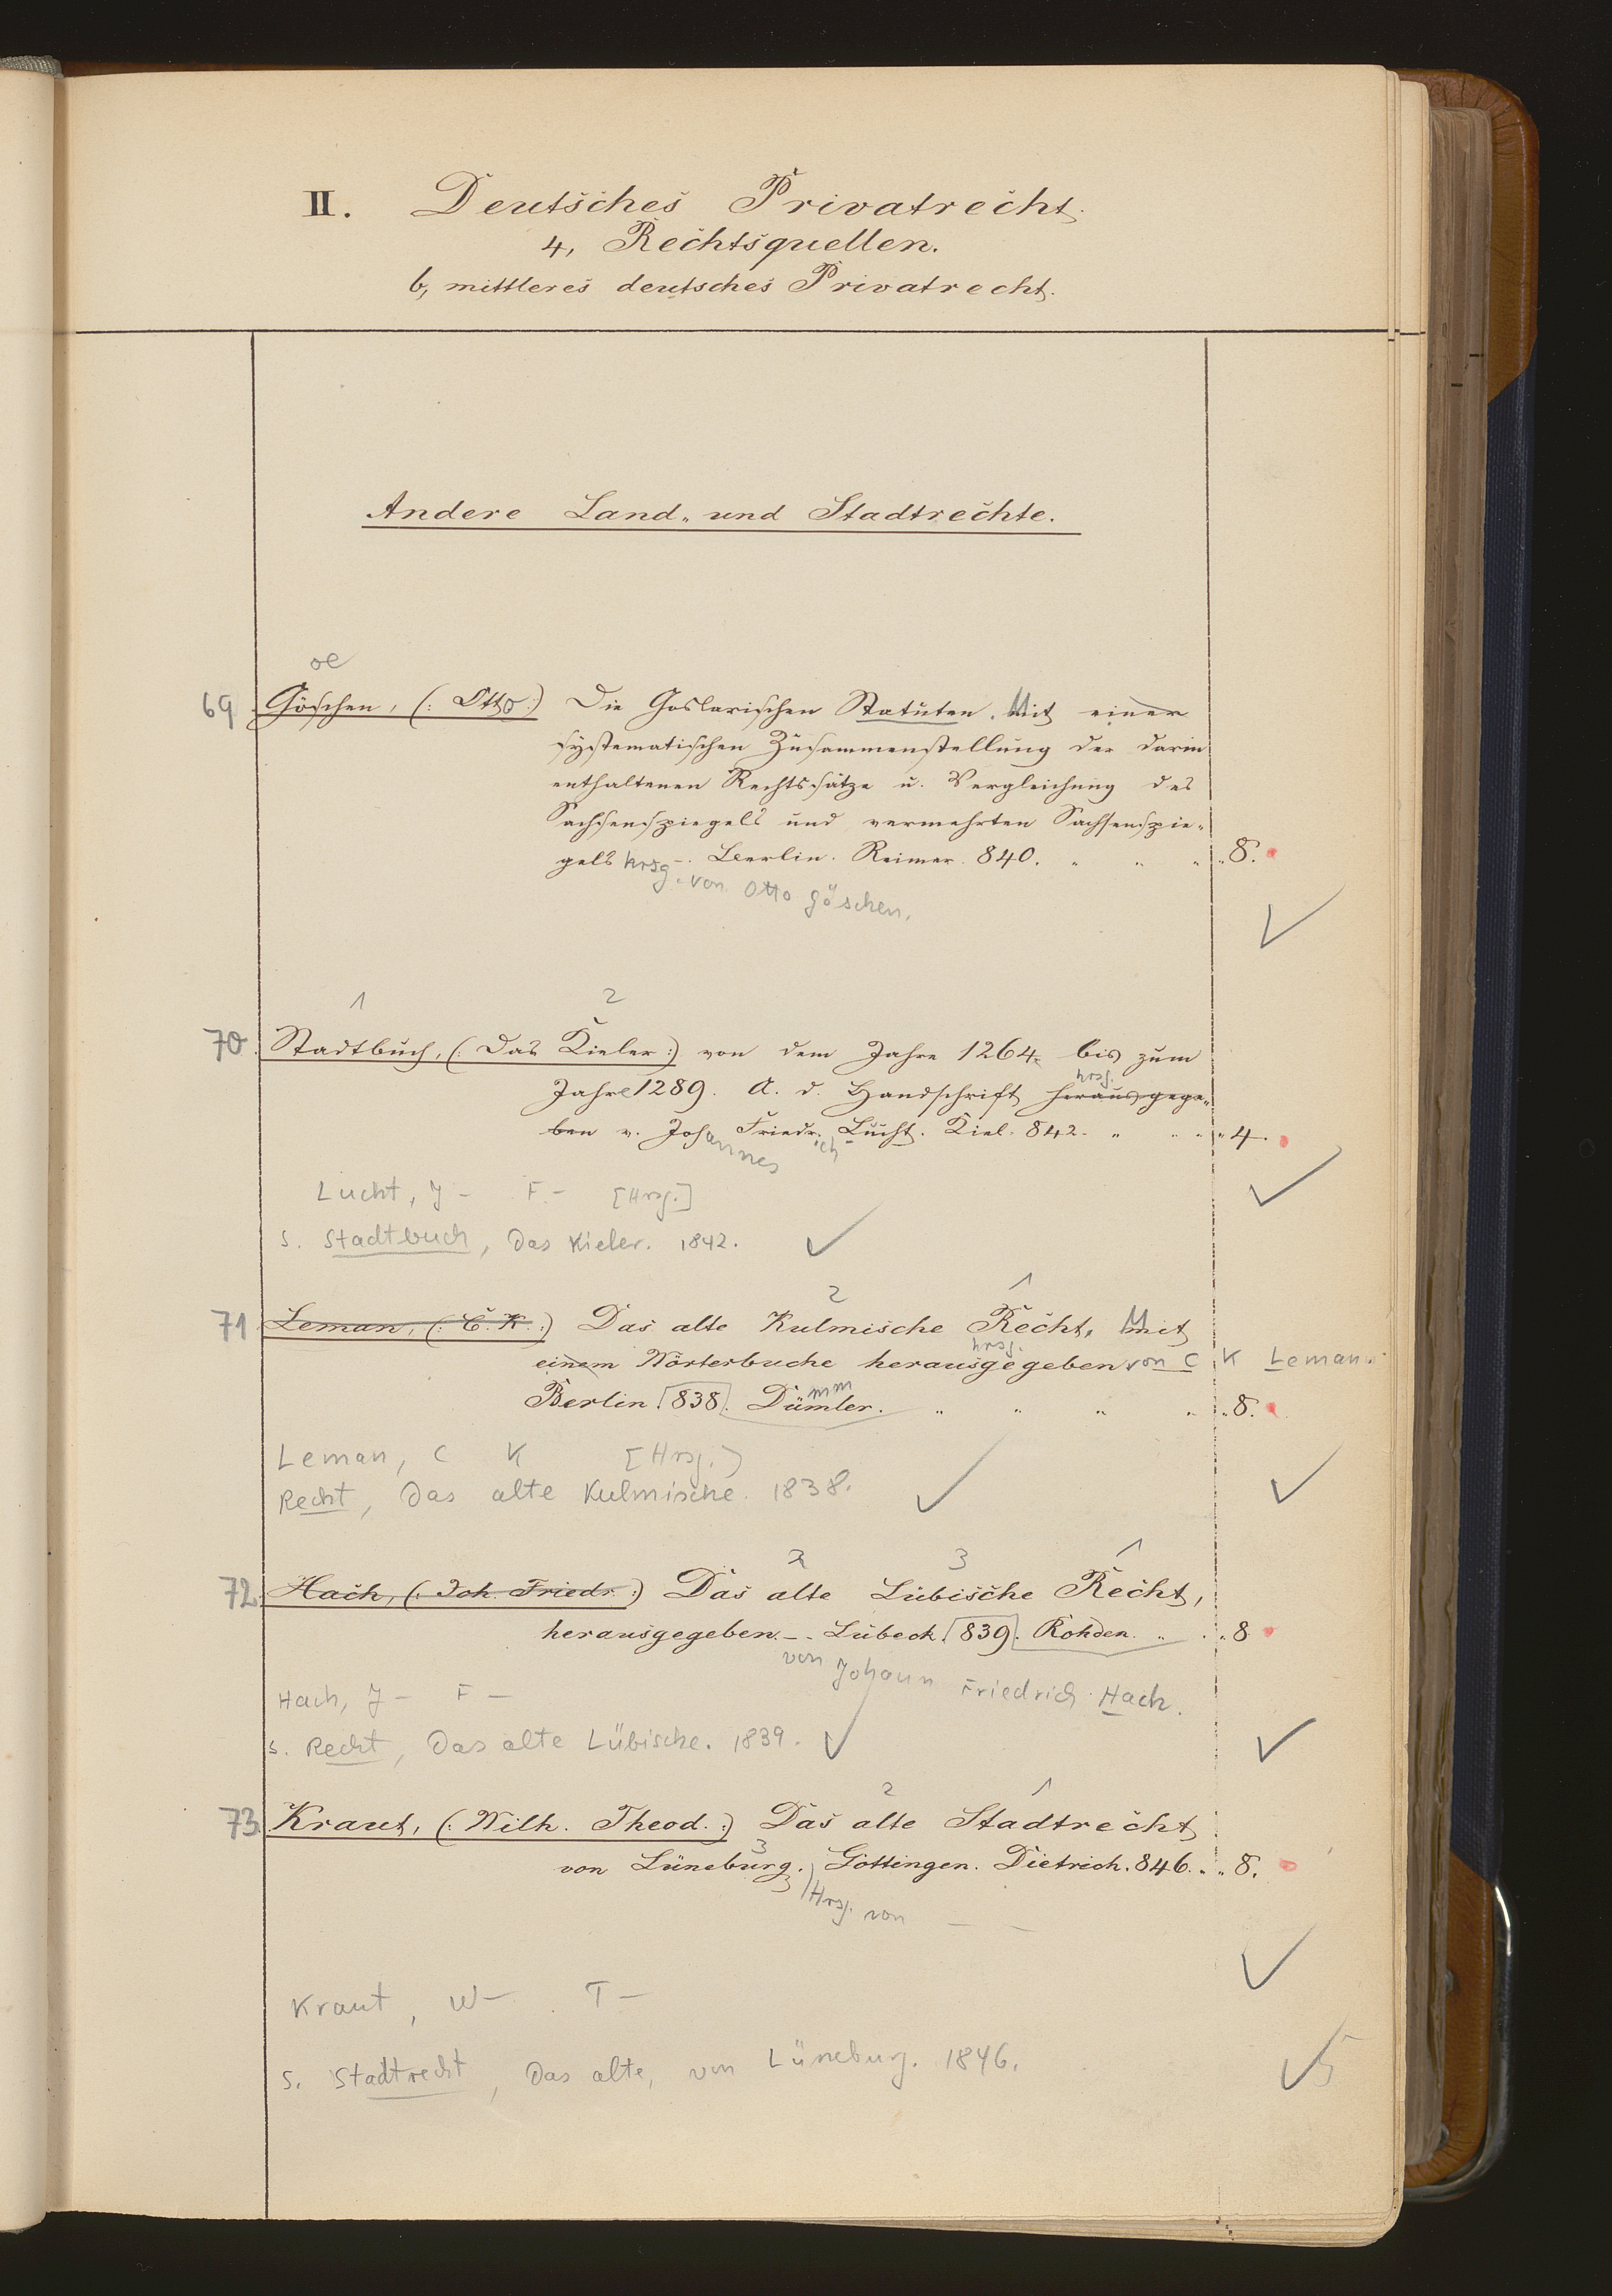 II. Deutsches Privatrecht.
4, Rechtsquellen.
b, mittleres deutsches Privatrecht.
Andere Land- und Stadtrechte.
oe
69 Göschen, (: Otto :) Die Goslarischen Statuten. Mit einer
systematischen Zusammenstellung der darin
enthaltenen Rechtssätze u. Vergleichung des
Sachsenspiegels und vermehrten Sachsenspie-
gels hrsg. -. Berlin. Reimer. 840. " " " " 8.
von Otto Göschen.
1 2
70. Stadtbuch, (: Das Kieler :) von dem Jahre 1264 bis zum
hrsg.
Jahre 1289. A. d. Handschrift herausgege-
ben v. Joh Friedr. Lucht. Kiel. 842. " " " " 4.
annes ich
Lucht, J - F - [Hrsg.]
s. Stadtbuch, Das Kieler. 1842.
2 1
71 Leman, (: C. K. :) Das alte Kulmische Recht, Mit
hrsg.
einem Wörterbuche herausgegeben von C K Leman
mm
Berlin. 838. Dümler. " " " " " 8.
Leman, C K [Hrsg.]
Recht, Das alte Kulmische. 1838.
2 3 1
72. Hach, (: Joh. Friedr. :) Das alte Lübische Recht,
herausgegeben. -. Lübeck. 839. Rohden. " " 8
von Johann Friedrich Hach.
Hach, J - F -
s. Recht, Das alte Lübische. 1839.
2 1
73. Kraut, (: Wilh. Theod. :) Das alte Stadtrecht
3
von Lüneburg. Göttingen. Dietrich. 846. " " 8.
Hrsg. von - -
Kraut, W - T -
s. Stadtrecht, Das alte, von Lüneburg. 1846.
5